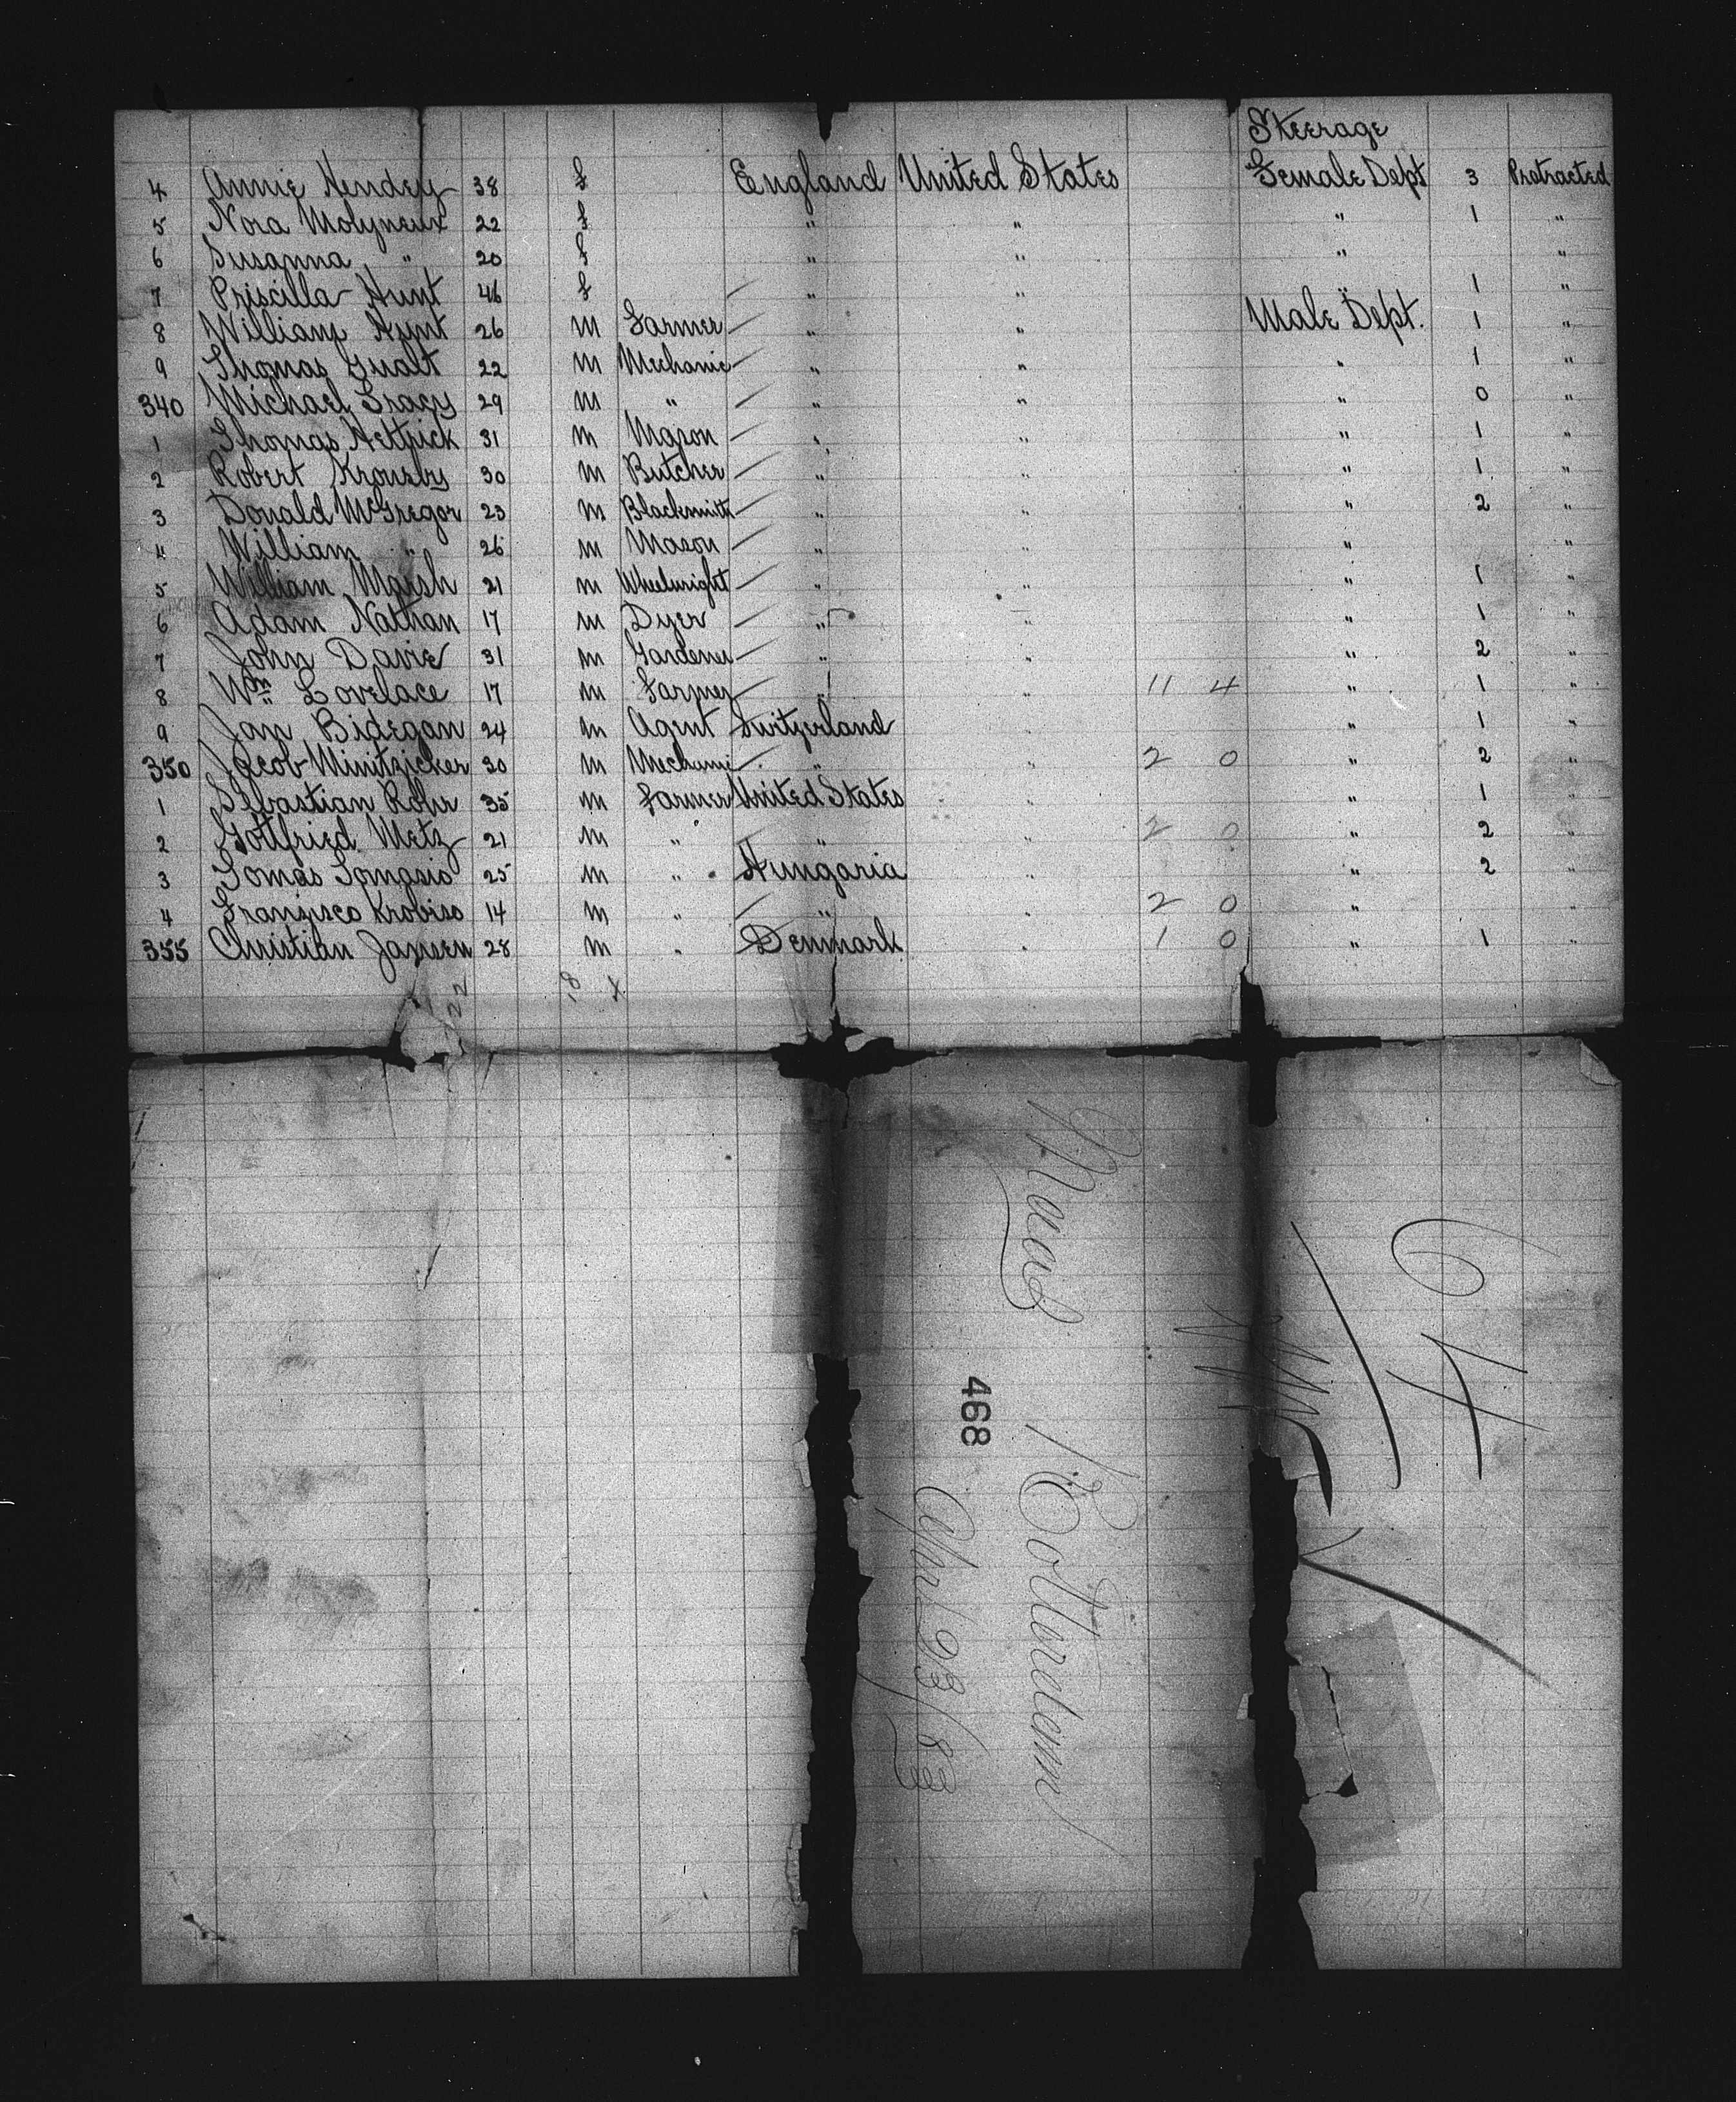 Steerage
4 Annie Hendry 38 f England United States Female Dept 3 Protracted
5 Nora Molyneux 22 f " " " 1 "
6 Susanna " 20 f " " " "
7 Priscilla Hunt 46 f " " " 1 "
8 William Hunt 26 m Farmer " " Male Dept. 1 "
9 Thomas 22 m Mechanic " " " 1 "
340 Michael Tracy 29 m " " " " 0 "
1 Thomas Hettrick 31 m Mason " " " 1 "
2 Robert 30 m Butcher " " " 1 "
3 Donald McGregor 23 m Blacksmith " " " 2 "
4 William " 26 m Mason " " " "
5 William Marsh 21 m Wheelwright " " " 1 "
6 Adam Nathan 17 m Dyer " " " 1 "
7 John Davie 31 m Gardener " " " 2 "
8 Wm Lovelace 17 m Farmer " " 11 4 " 1 "
9 Jan Bidegan 24 m Agent Switzerland " 1 "
350 Jacob Minitzicker 30 m Mechanic " " 2 0 " 2 "
1 Sebastian Rohr 35 m Farmer United States " " 1 "
2 Gottfried Metz 21 m " " " 2 0 " 2 "
3 Tomas Tomasio 25 m " Hungaria " " 2 "
4 Franzisco Krobiso 14 m " " " 2 0 " "
355 Christian Jansen 28 m " Denmark " 1 0 " 1 "
22 18 4
64
Maas
Rotterdam
468
April 23/83